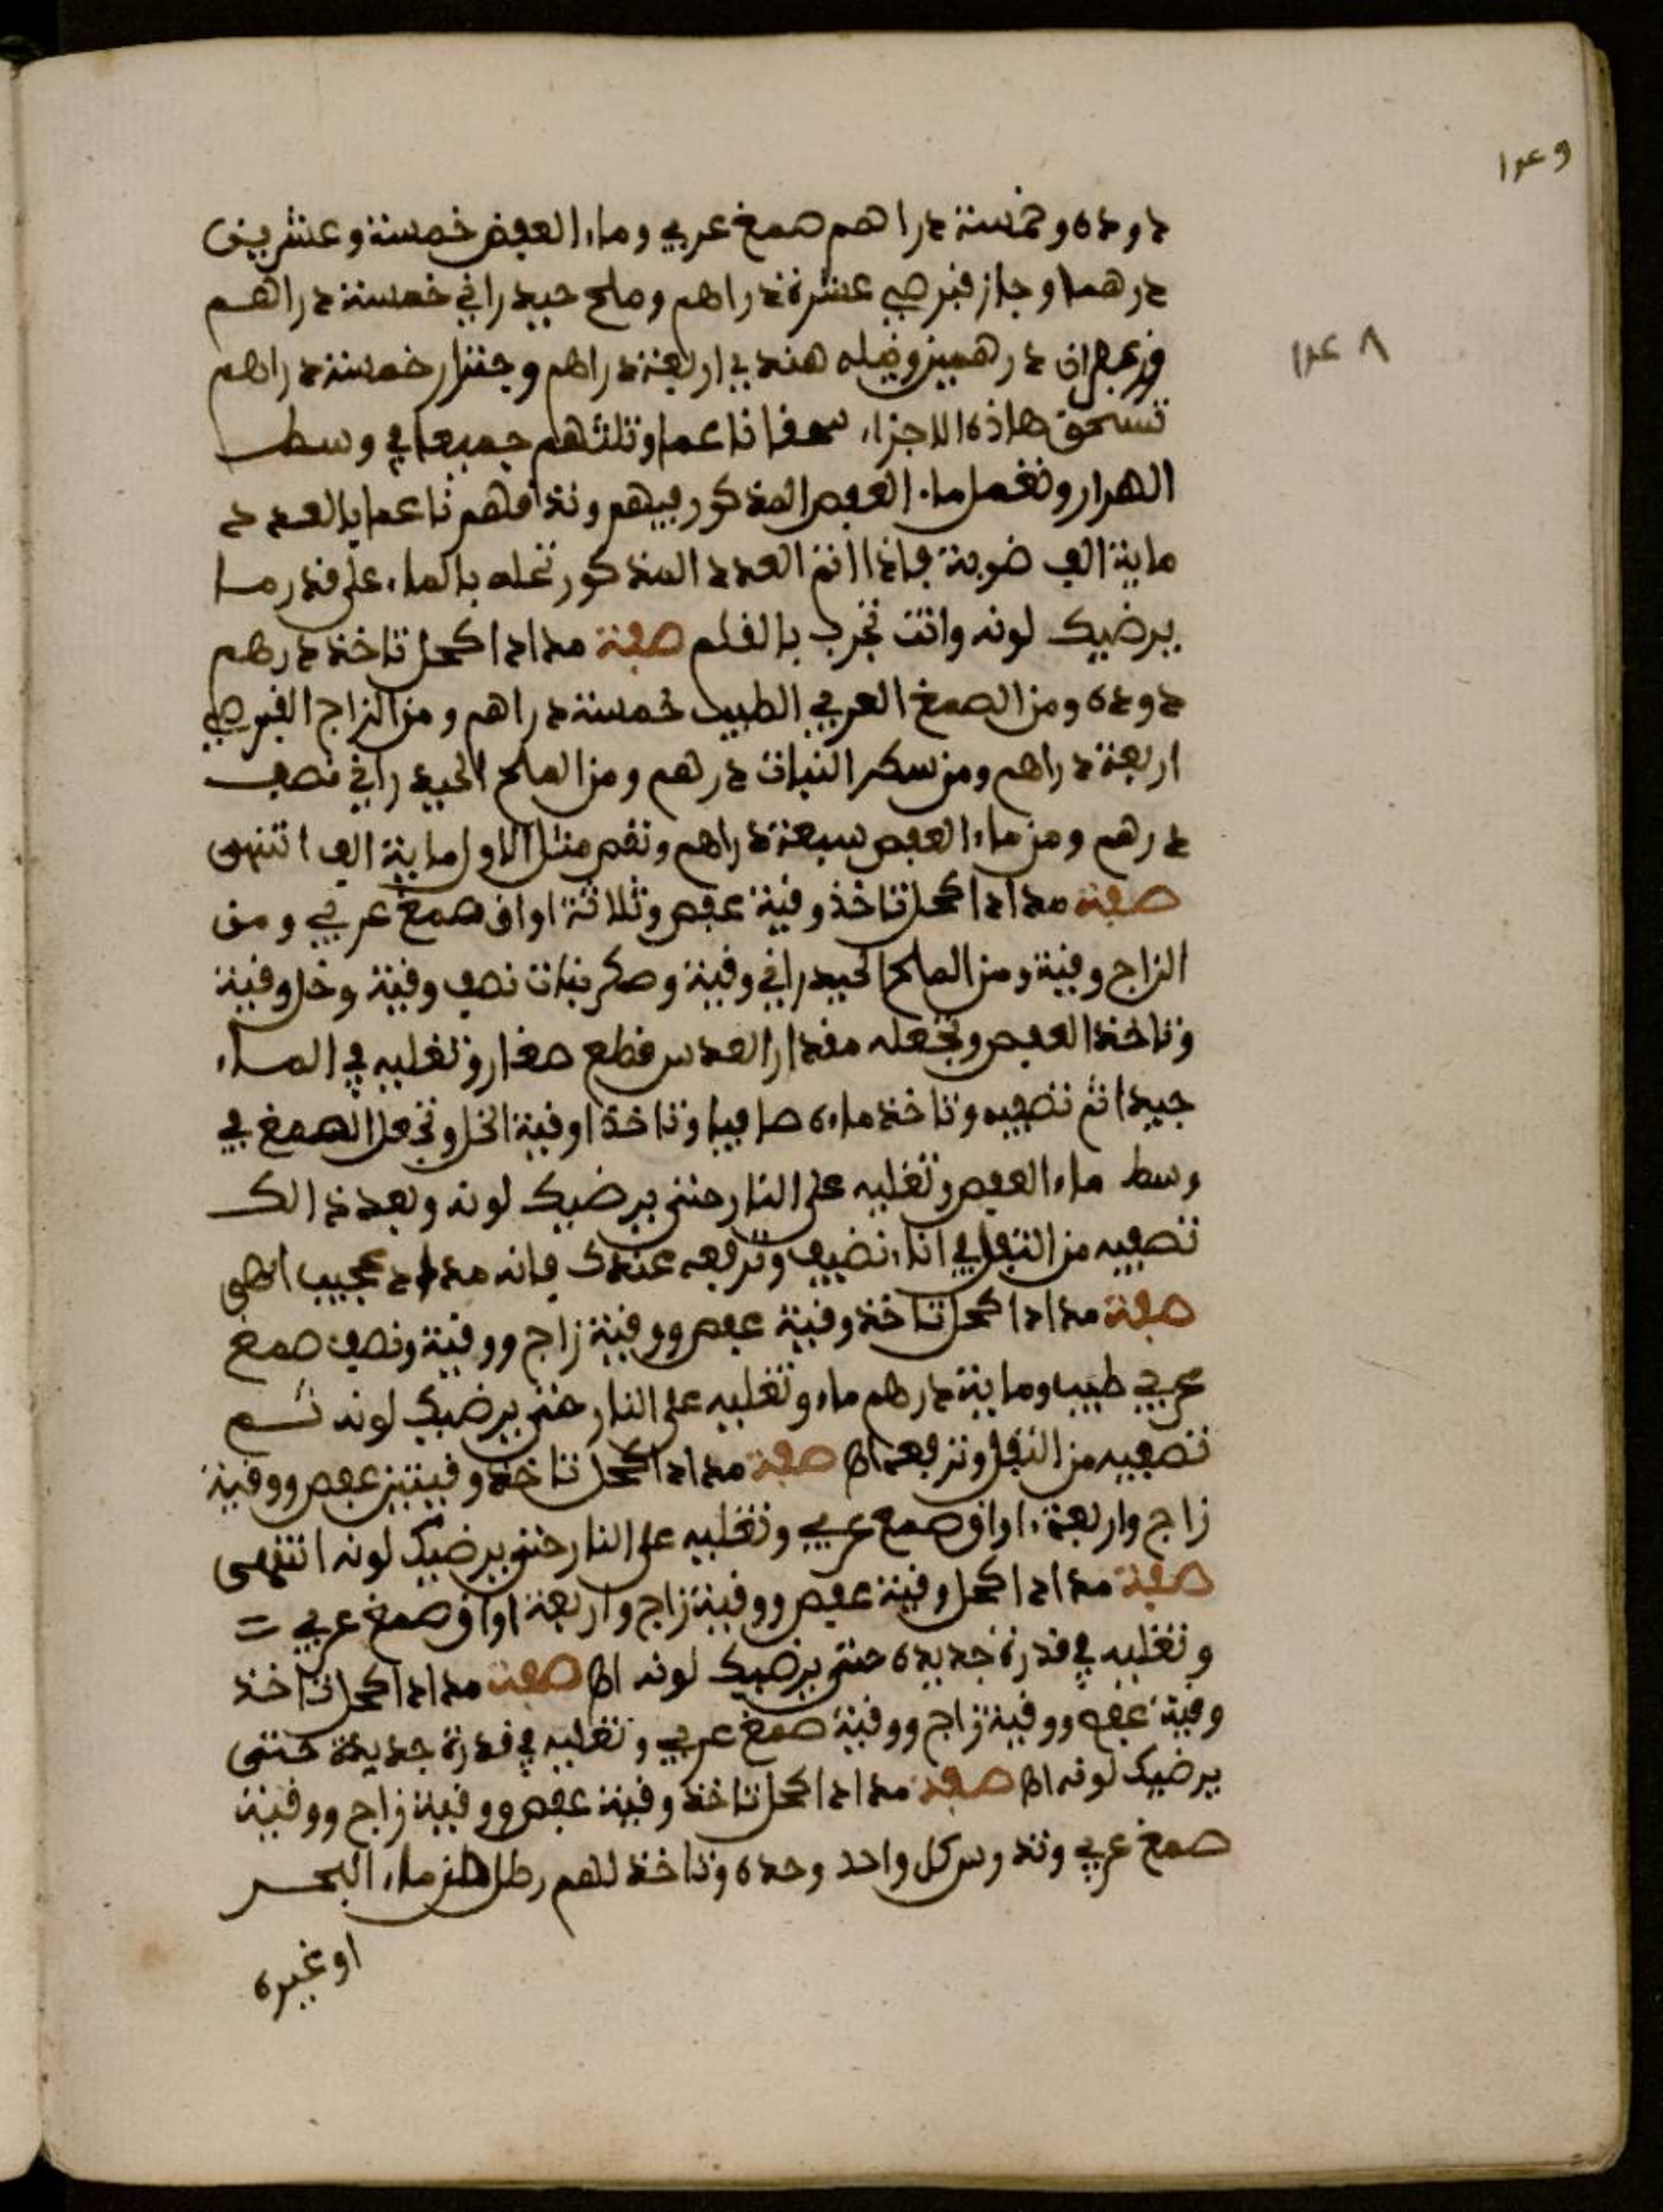 دودة وخمسة دراهم صمغ عربي وماء العفص خمسة وعشرين
درهما وجاز قبرصي عشرة دراهم وملح حيدراني خمسة دراهم
وزعفران درهمين ونيله هندي اربعة دراهم وجنزار خمسة دراهم
تسحق هاذه الاجزاء سحقا ناعما وتلتهم جميعا في وسط
الهراز وتعمل ماء العفص المذكور فيهم وتدقهم ناعما بالعدد
ماية الف ضربة فاذا اتم العدد المذكور تحله بالماء على قدر ما
يرضيك لونه وانت تجرب بالقلم صفة مداد اكحل تاخذ درهم
دودة ومن الصمغ العربي الطيب خمسة دراهم ومن الزاج القبرصي
اربعة دراهم ومن سكر النبات درهم ومن الملح الحيدراني نصف
درهم ومن ماء العفص سبعة دراهم وتقم مثل الاول ماية الف انتهى
صفة مداد اكحل تاخذ وقية عفص وثلاثة اواق صمغ عربي ومن
الزاج وقية ومن الملح الحيدراني وقية وصكر نبات نصف وقية وخل وقية
وتاخذ العفص وتجعله مقدار العدس قطع صغار وتغليه في الماء
جيدا ثم تصفيه وتاخذ ماءه صافيا وتاخذ اوقية الخل وتجعل الصمغ في
وسط ماء العفص وتغليه على النار حتى يرضيك لونه وبعد ذالك
تصفيه من الثفل في اناء نضيف وترفعه عندك فانه مداد عجيب اهى
صفة مداد اكحل تاخذ وقية عفص ووقية زاج ووقية ونصف صمغ
عربي طيب وماية درهم ماء وتغليه على النار حتى يرضيك لونه ثم
تصفيه من الثفل وترفعه اه صفة مداد اكحل تاخذ وقيتين عفص ووقية
زاج واربعة اواق صمغ عربي وتغليه على النار حتى يرضيك لونه انتهى
صفة مداد اكحل وقية عفص ووقية زاج واربعة اواق صمغ عربي
وتغليه في قدرة جديدة حتى يرضيك لونه اه صفة مداد اكحل تاخذ
وقية عفص ووقية زاج ووقية صمغ عربي وتغليه في قدرة جديدة حتى
يرضيك لونه اه صفة مداد اكحل تاخذ وقية عفص ووقية زاج ووقية
صمغ عربي وتدرس كل واحد وحده وتاخذ لهم رطل من ماء البحر
او غيره